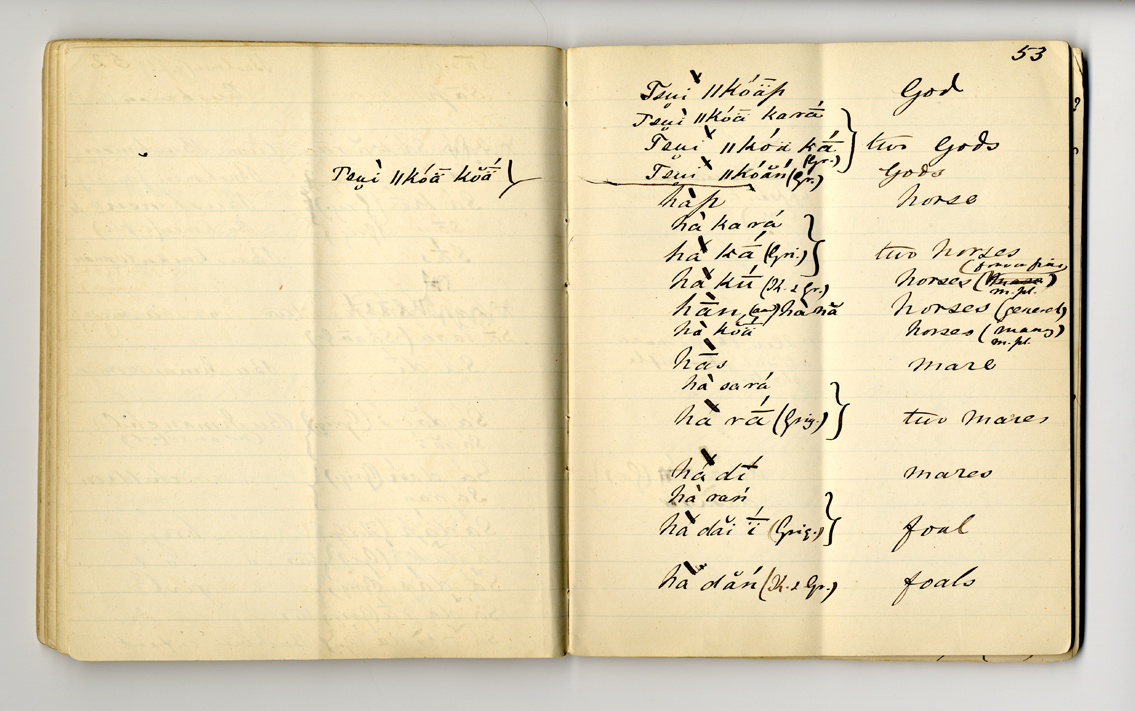 Tsui ǁkóā kŏā́ )
53
Tsui ǁkóäp God
Tsui ǁkóā karā́
Tsui ǁkóä kā́ (Gr.) } two Gods
Tsui ǁkóăń (Gr.) Gods
hàp horse
hà kará
hà kā́ (Gri.) } two horses
hà kū́ (K. & Gr.) horses (m.pl.)
hān (or) hà nă horses (general)
hà kŏā horses (many m.pl.)
hās mare
hà sará
hà rā́ (Grig.) } two mares
hà dī́ mares
hà rań
hà dăi ī́ (Grig.) } foal
hà dăń (K. & Gr.) foals